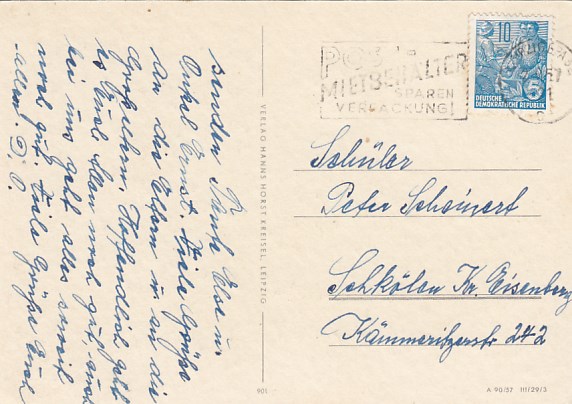 senden Tante Else u.
Onkel Ernst. Viele Grüße
an die Eltern u. an die
Großeltern. Hoffendlich geht
es Euch allen noch gut, auch
bei uns geht alles soweit
noch gut. Viele Grüße Euch
allen D. O.
VERLAG HANNS HORST KREISEL, LEIPZIG
901
Post-
MIETBEHÄLTER
SPAREN
VERPACKUNG!
10
DEUTSCHE
DEMOKRATISCHE REPUBLIK
5
57
Schüler
Peter Scheinert
Schkölen Kr. Eisenberg
Kämmeritzerstr 242
A 90/57 III/29/3